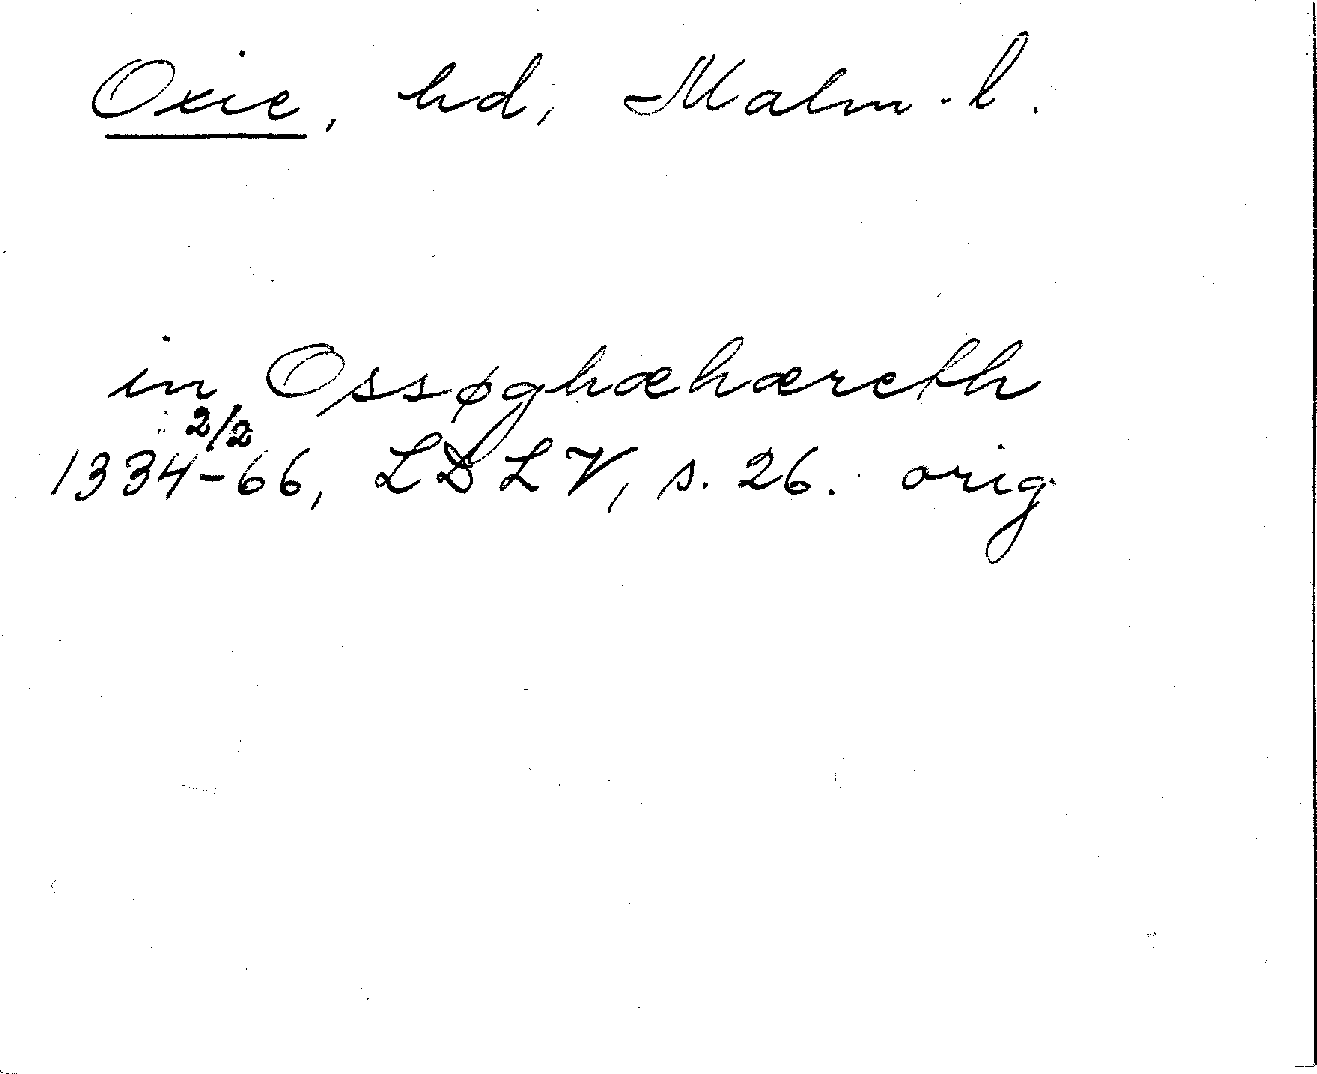 Oxie, hd, Malm.l.
in Ossøghæhæreth
2/2
1334-66, LDLV, s. 26. orig